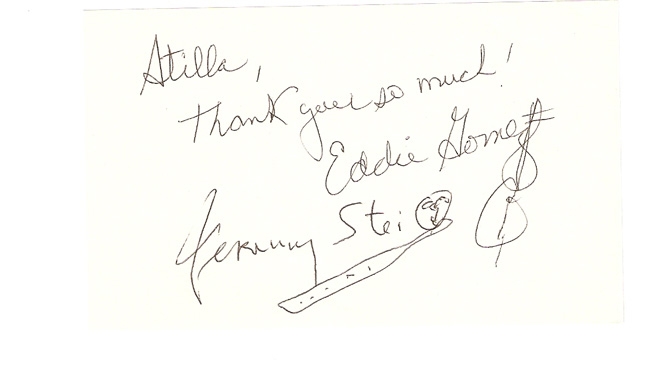 Atilla,
Thank you so much!
Eddie Gomez
Jeremy Steig